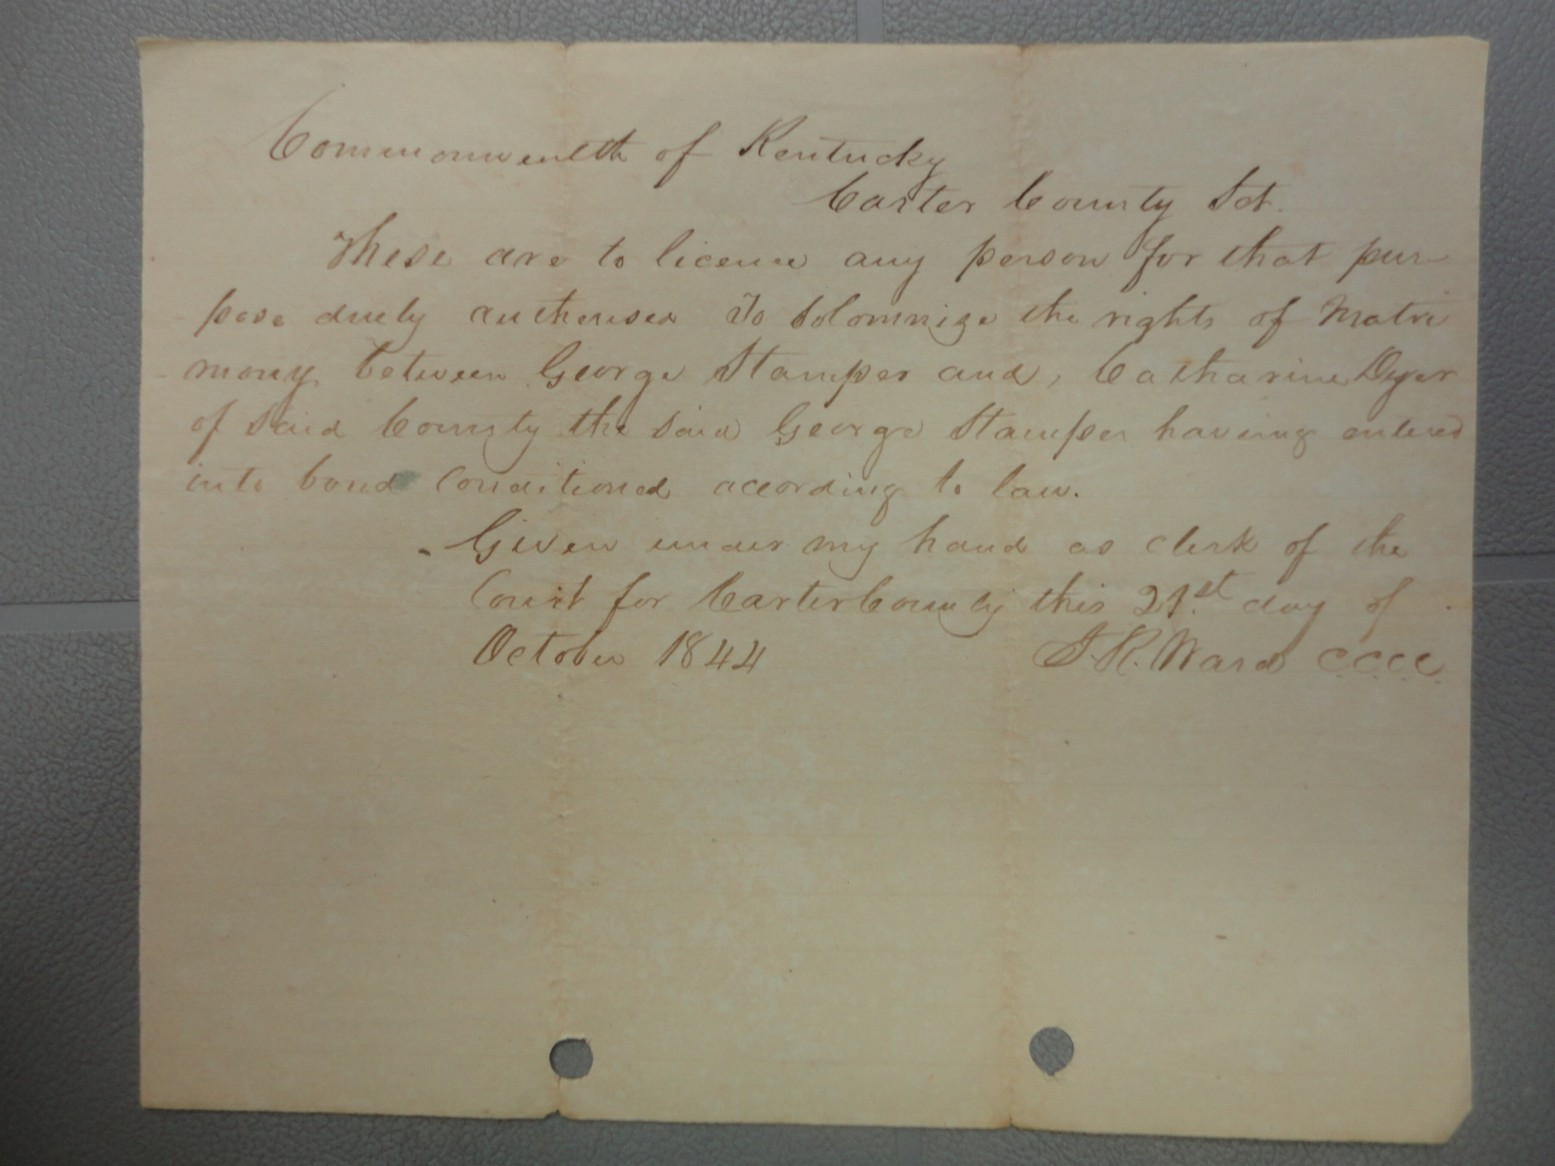 Commonwealth of Kentucky
Carter County Sct.
These are to licence any person for that pur-
pose duely autherised To Solomnize the rights of Matri
mony between George Stamper and, Catharine Dyer
of said County the said George Stamper having entered
into bond Conditioned according to law.
Given under my hand as clerk of the
Court for Carter County this 21st day of
October 1844 J. R. Ward C.C.C.C.